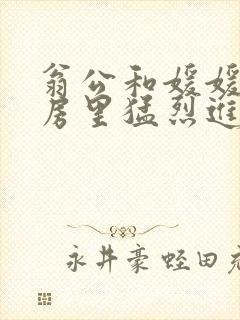 翁公和媛媛
房里猛烈进
永井豪蛭田充